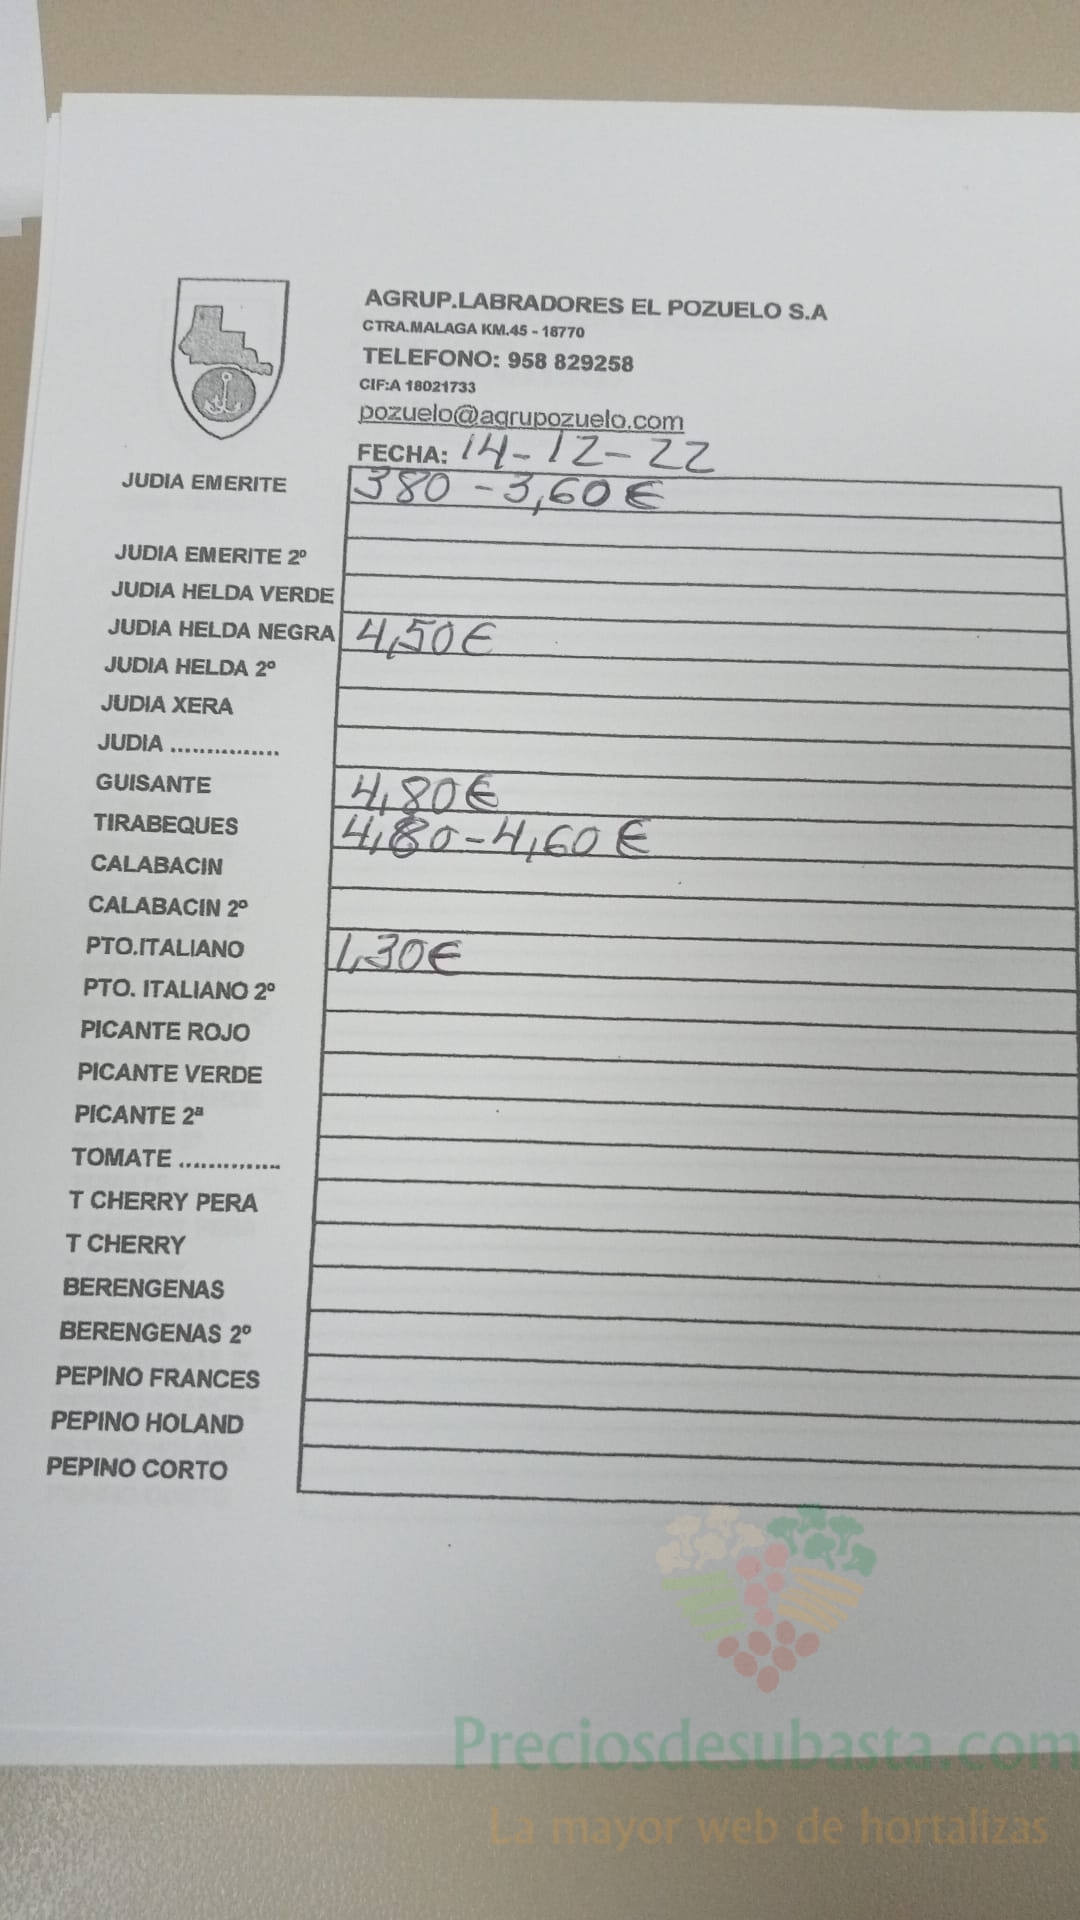 AGRUP.LABRADORES EL POZUELO S.A
CTRA.MALAGA KM.45 - 18770
TELEFONO: 958 829258
CIF:A 18021733
pozuelo@agrupozuelo.com
FECHA: 14-12-22
JUDIA EMERITE 380 - 3,60 €
JUDIA EMERITE 2º
JUDIA HELDA VERDE
JUDIA HELDA NEGRA 4,50 €
JUDIA HELDA 2º
JUDIA XERA
JUDIA ...............
GUISANTE 4,80 €
TIRABEQUES 4,80 - 4,60 €
CALABACIN
CALABACIN 2º
PTO.ITALIANO 1,30 €
PTO. ITALIANO 2º
PICANTE ROJO
PICANTE VERDE
PICANTE 2ª
TOMATE ..............
T CHERRY PERA
T CHERRY
BERENGENAS
BERENGENAS 2º
PEPINO FRANCES
PEPINO HOLAND
PEPINO CORTO
Preciosdesubasta.com
La mayor web de hortalizas